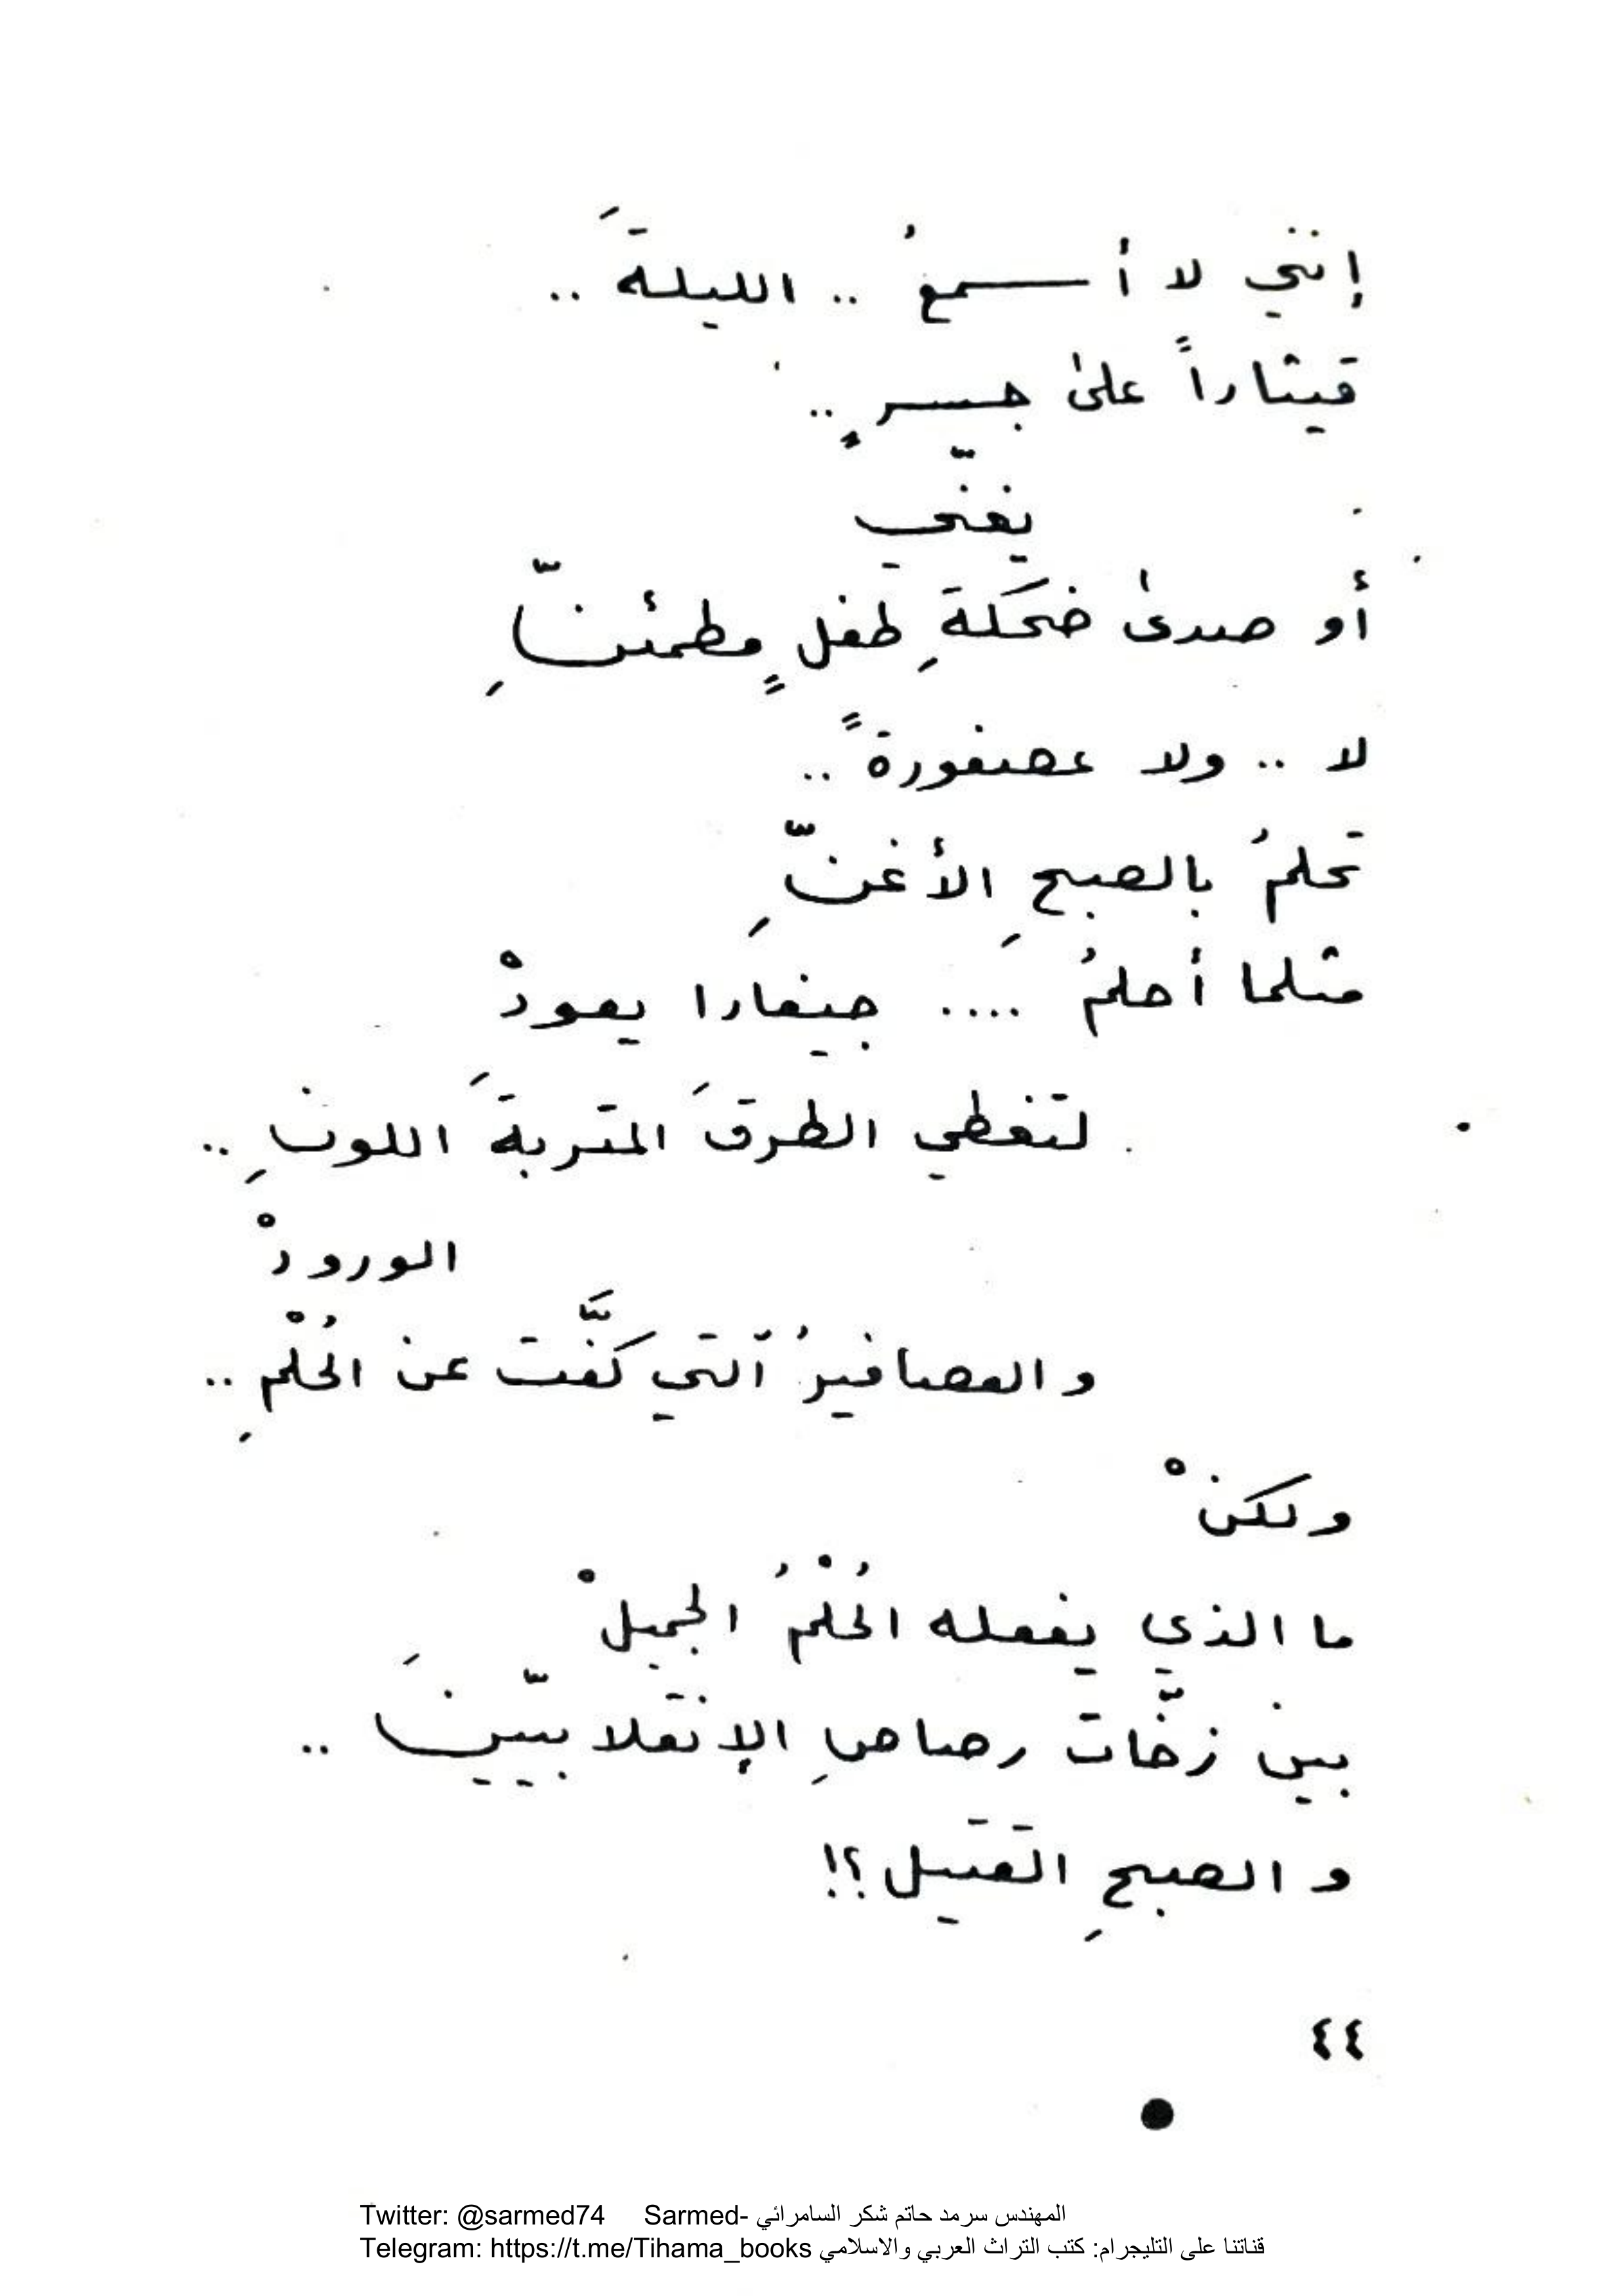 إنني لا أســـمعُ .. الليلةَ ..
قيثاراً علىٰ جســرٍ ..
يغنّي
أو صدىٰ ضحكةِ طفلٍ مطمئنِّ
لا .. ولا عصفورةً ..
تحلمُ بالصبحِ الأغنِّ
مثلما أحلمُ .... جيفارا يعودْ
لتغطي الطرقَ المتربةَ اللونِ ..
الورودْ
والعصافيرُ آلتي كفَّت عن الحُلْمِ ..
ولكنْ
ما الذي يفعله الحُلْمُ الجميلْ
بين زخّات رصاصِ الإنقلابيّينَ ..
والصبحِ القتيل؟!
٤٤
Twitter: @sarmed74 Sarmed- المهندس سرمد حاتم شكر السامرائي
Telegram: https://t.me/Tihama_books قناتنا على التليجرام: كتب التراث العربي والاسلامي